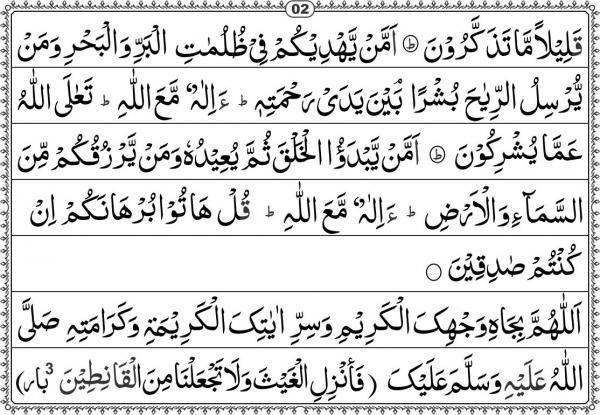 02
قَلِيْلاً مَّا تَذَكَّرُوْنَ ؕ اَمَّنْ يَّهْدِيْكُمْ فِيْ ظُلُمٰتِ الْبَرِّ وَالْبَحْرِ وَمَنْ
يُّرْسِلُ الرِّيٰحَ بُشْرًا ۢ بَيْنَ يَدَىْ رَحْمَتِهٖ ؕ ءَاِلٰهٌ مَّعَ اللّٰهِ ؕ تَعٰلَى اللّٰهُ
عَمَّا يُشْرِكُوْنَ ؕ اَمَّنْ يَّبْدَؤُا الْخَلْقَ ثُمَّ يُعِيْدُهٗ وَمَنْ يَّرْزُقُكُمْ مِّنَ
السَّمَآءِ وَالْاَرْضِ ؕ ءَاِلٰهٌ مَّعَ اللّٰهِ ؕ قُلْ هَاتُوْا بُرْهَانَكُمْ اِنْ
كُنْتُمْ صٰدِقِيْنَ ○
اَللّٰهُمَّ بِجَاهِ وَجْهِكَ الْكَرِيْمِ وَسِرِّ اٰيٰتِكَ الْكَرِيْمَةِ وَكَرَامَتِهٖ صَلَّى
اللّٰهُ عَلَيْهِ وَسَلَّمَ عَلَيْكَ (فَأَنْزِلِ الْغَيْثَ وَلَا تَجْعَلْنَا مِنَ الْقَانِطِيْنَ 3 بار)